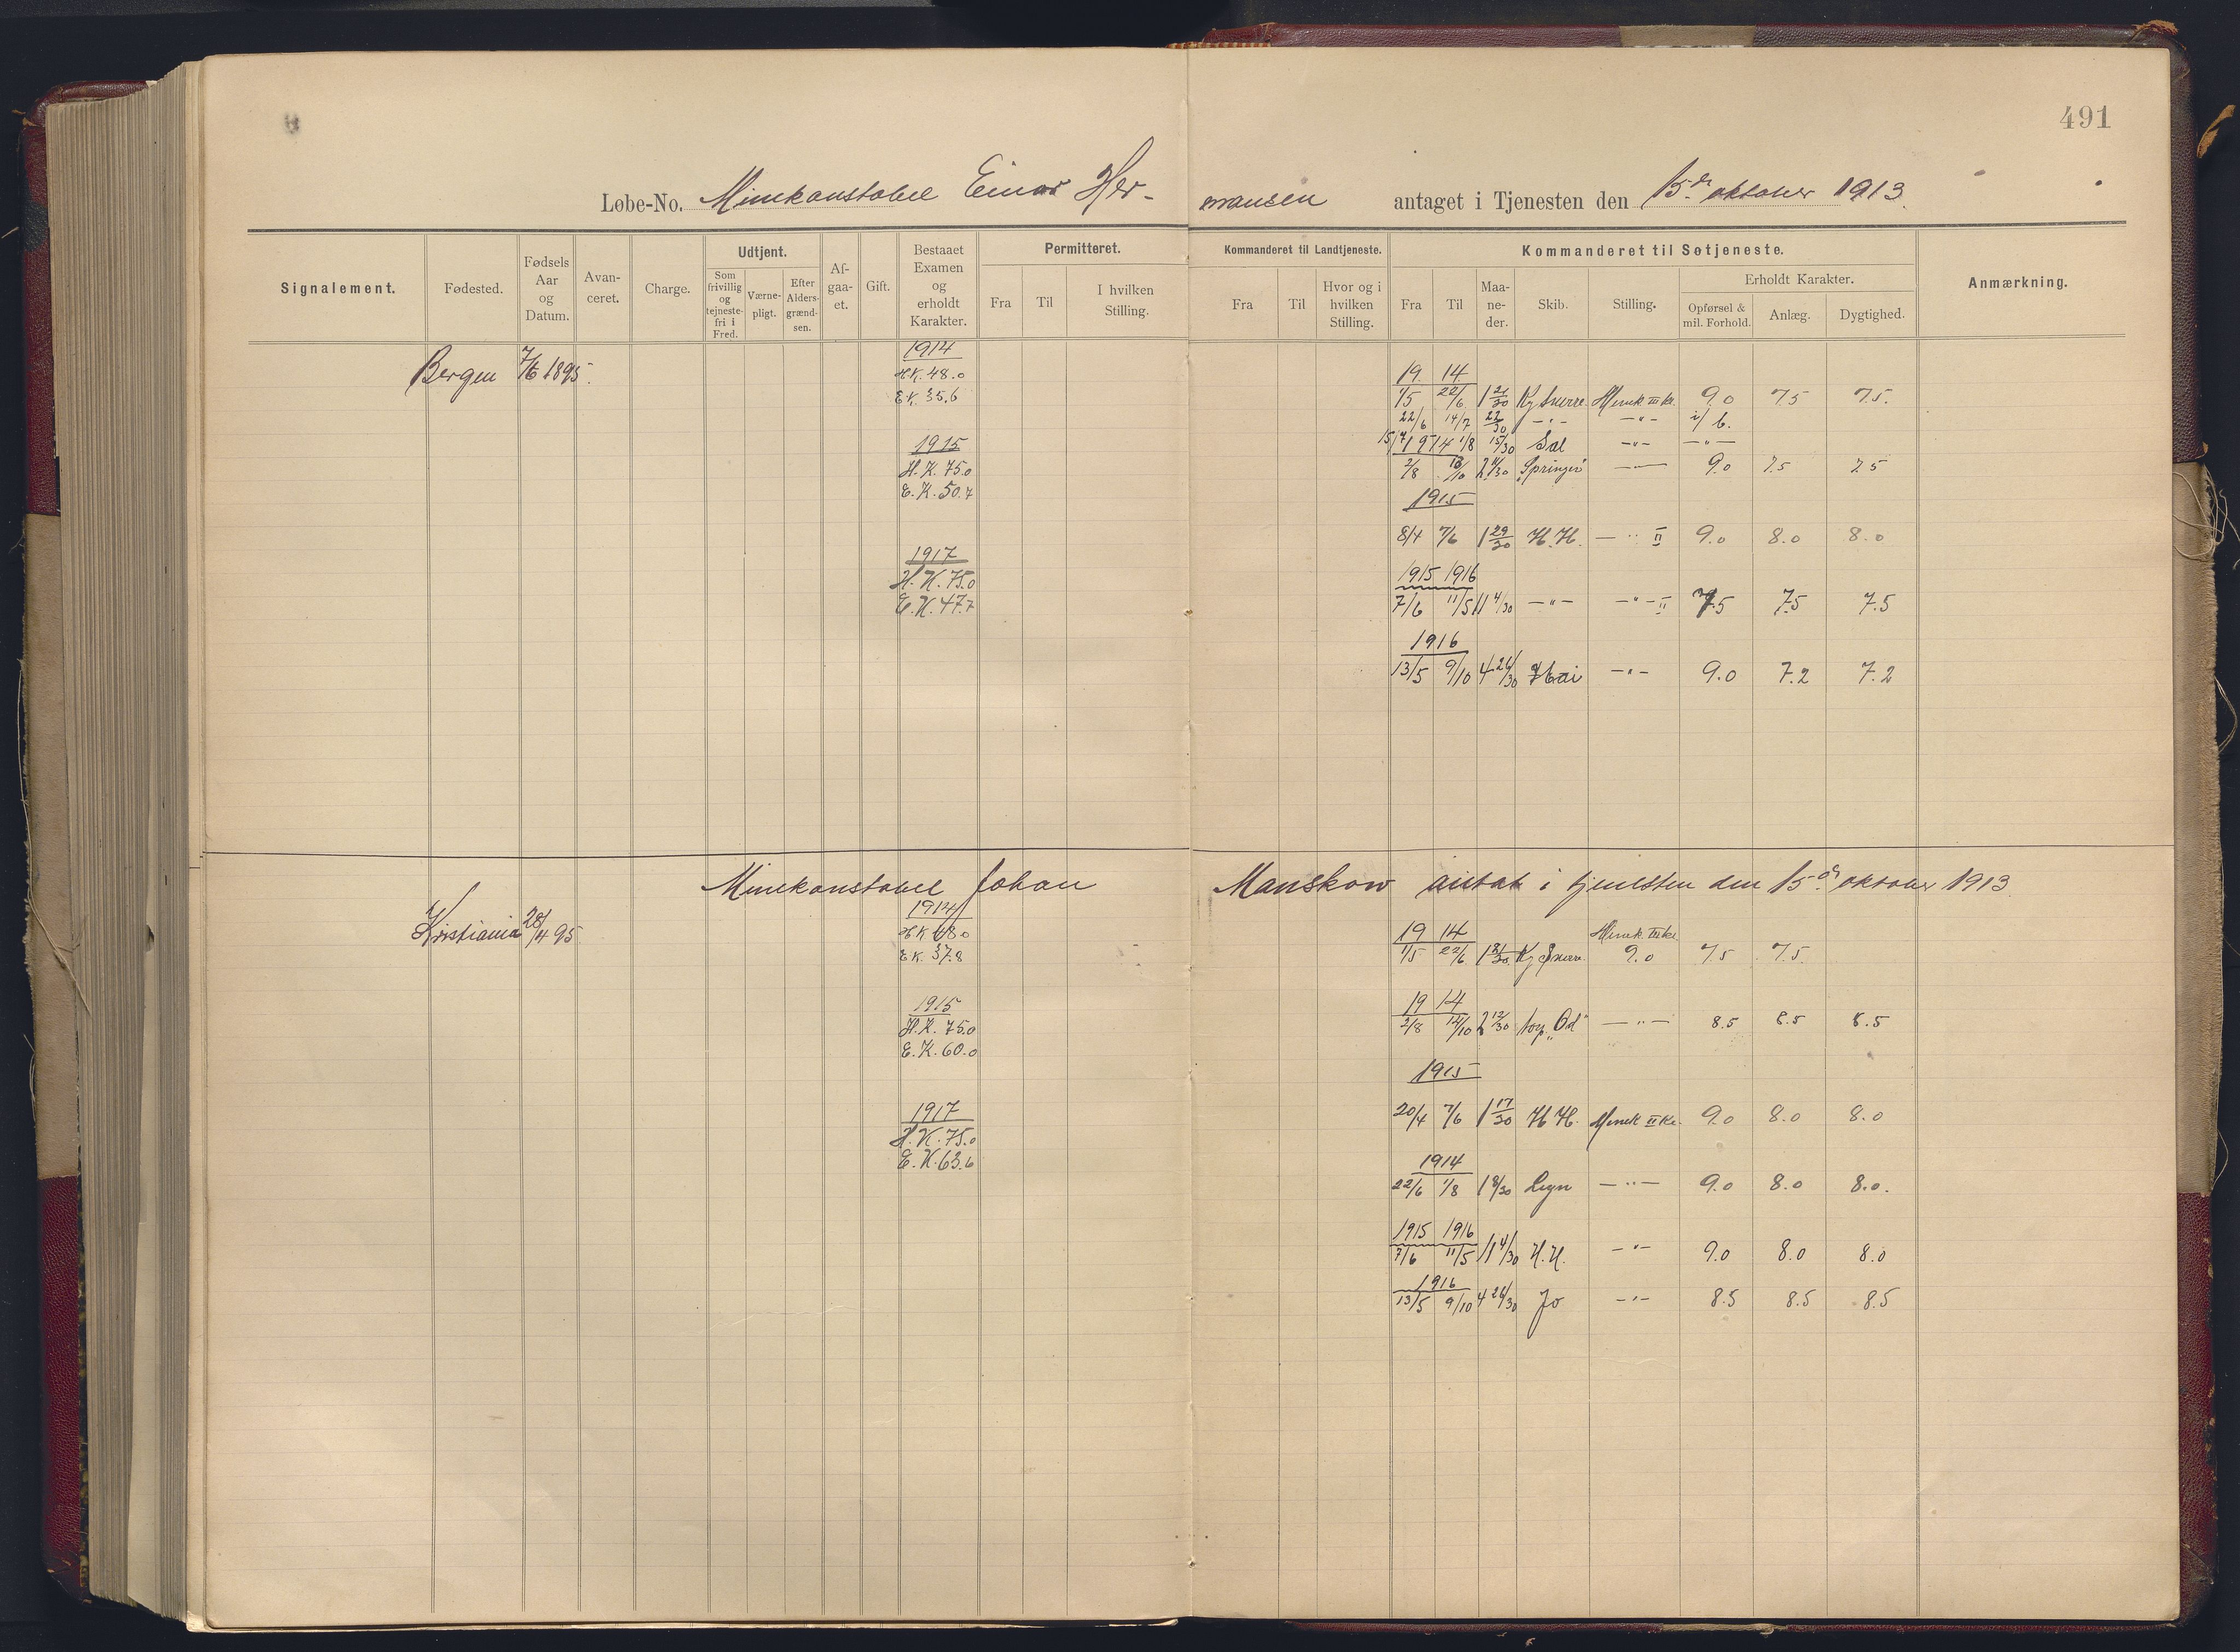 491
Løbe-No. Minekonstabel Einar Hermansen antaget i Tjenesten den 15de oktober 1913.
Signalement. Fødested. Fødsels Aar og Datum. Avanceret. Charge. Udtjent. Som frivillig og tejnestefri i Fred. Værnepligt. Efter Aldersgrændsen. Afgaaet. Gift. Bestaaet Examen og erholdt Karakter. Permitteret. Fra Til I hvilken Stilling.
Kommanderet til Landtjeneste. Fra Til Hvor og i hvilken Stilling. Kommanderet til Søtjeneste. Fra Til Maaneder. Skib. Stilling. Erholdt Karakter. Opførsel & mil. Forhold. Anlæg. Dygtighed. Anmærkning.
Bergen 7/6 1895.
1914
H.K. 48.0
E.K. 35.6
1915
H.K. 75.0
E.K. 50.7
1917
H.K. 75.0
E.K. 47.7
19 14
1/5 22/6 1 21/30 Minek III kl. 9.0 7.5 7.5.
22/6 14/7 22/30 —"— —"— i/ b.
15/7 1914 1/8 15/30 Sæl —"— —"—
2/8 2 11/30 "Springer" —"— 9.0 7.5 7.5
1915
8/4 7/6 1 29/30 H.H. —"— II 9.0 8.0 8.0
1915 1916
7/6 11/5 11 4/30 —"— —"— II 7.5 7.5 7.5
1916
13/5 9/10 4 26/30 Hai —"— 9.0 7.2 7.2
Minekonstabel Johan Manskow antat i tjenesten den 15de oktober 1913
Kristiania 28/4 95
1914
H.K. 48.0
E.K. 37.8
1915
H.K. 75.0
E.K. 60.0
1917
H.K. 75.0
E.K. 63.6
19 14 Minek III kl
1/5 22/6 9.0 7.5 7.5
19 14
2/8 12/10 2 12/30 "Od" —"— 8.5 8.5 8.5
1915
20/4 7/6 1 17/30 H H. Minek II kl. 9.0 8.0 8.0
1914
22/6 1/8 1 8/30 Lyn —"— 9.0 8.0 8.0.
1915 1916
7/6 11/5 11 4/30 H.H. —"— 9.0 8.0 8.0
1916
13/5 9/10 4 26/30 Jo —"— 8.5 8.5 8.5